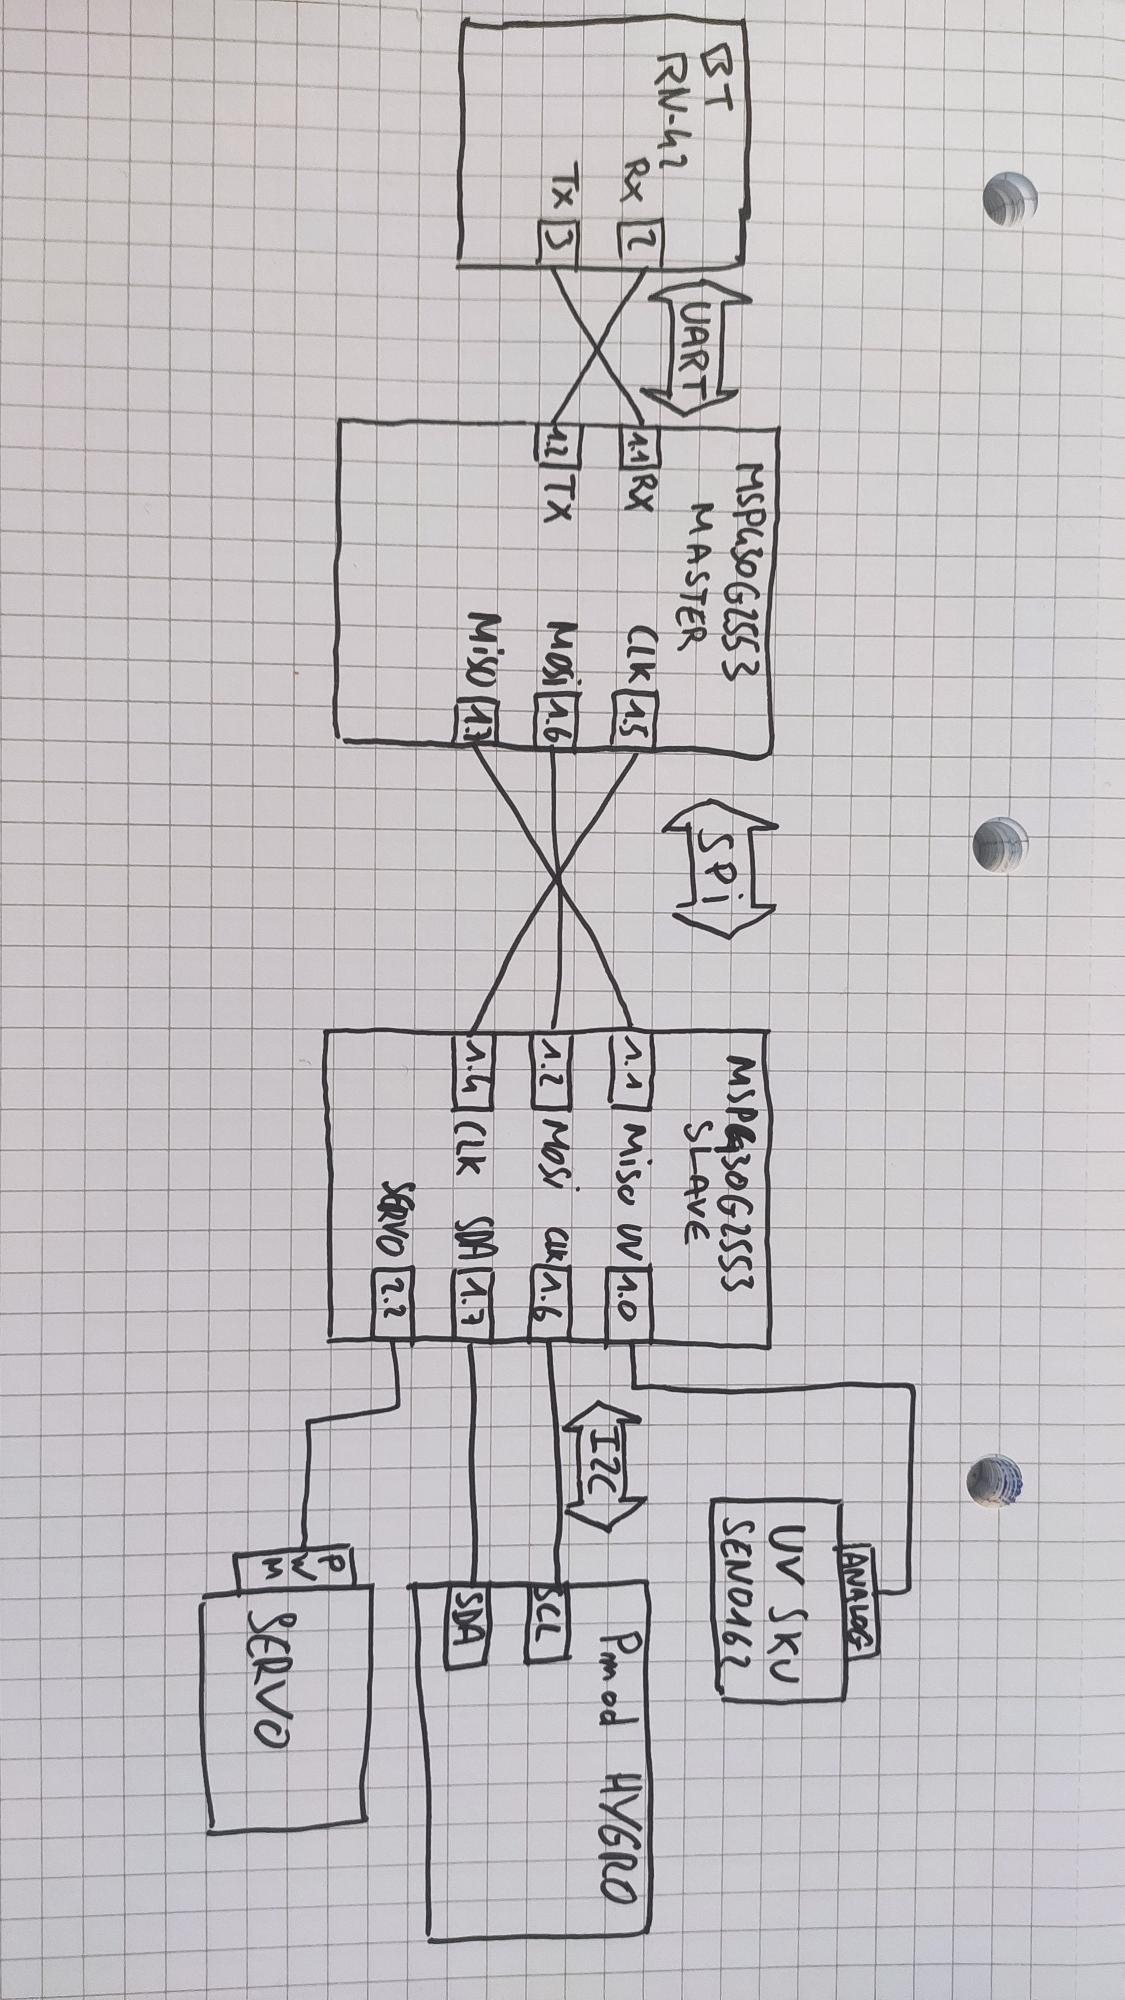 BT
RN-42
Rx 2
Tx 3
UART
MSP430G2553
MASTER
1.1 RX
1.2 TX
CLK 1.5
MOSi 1.6
MiSO 1.7
SPi
MSP430G2553
SLAVE
1.1 MiSO
1.2 MOSi
1.4 CLK
UV 1.0
CLK 1.6
SDA 1.7
SERVO 2.2
I2C
ANALOG
UV SKU
SEN0162
Pmod HYGRO
SCL
SDA
PWM
SERVO